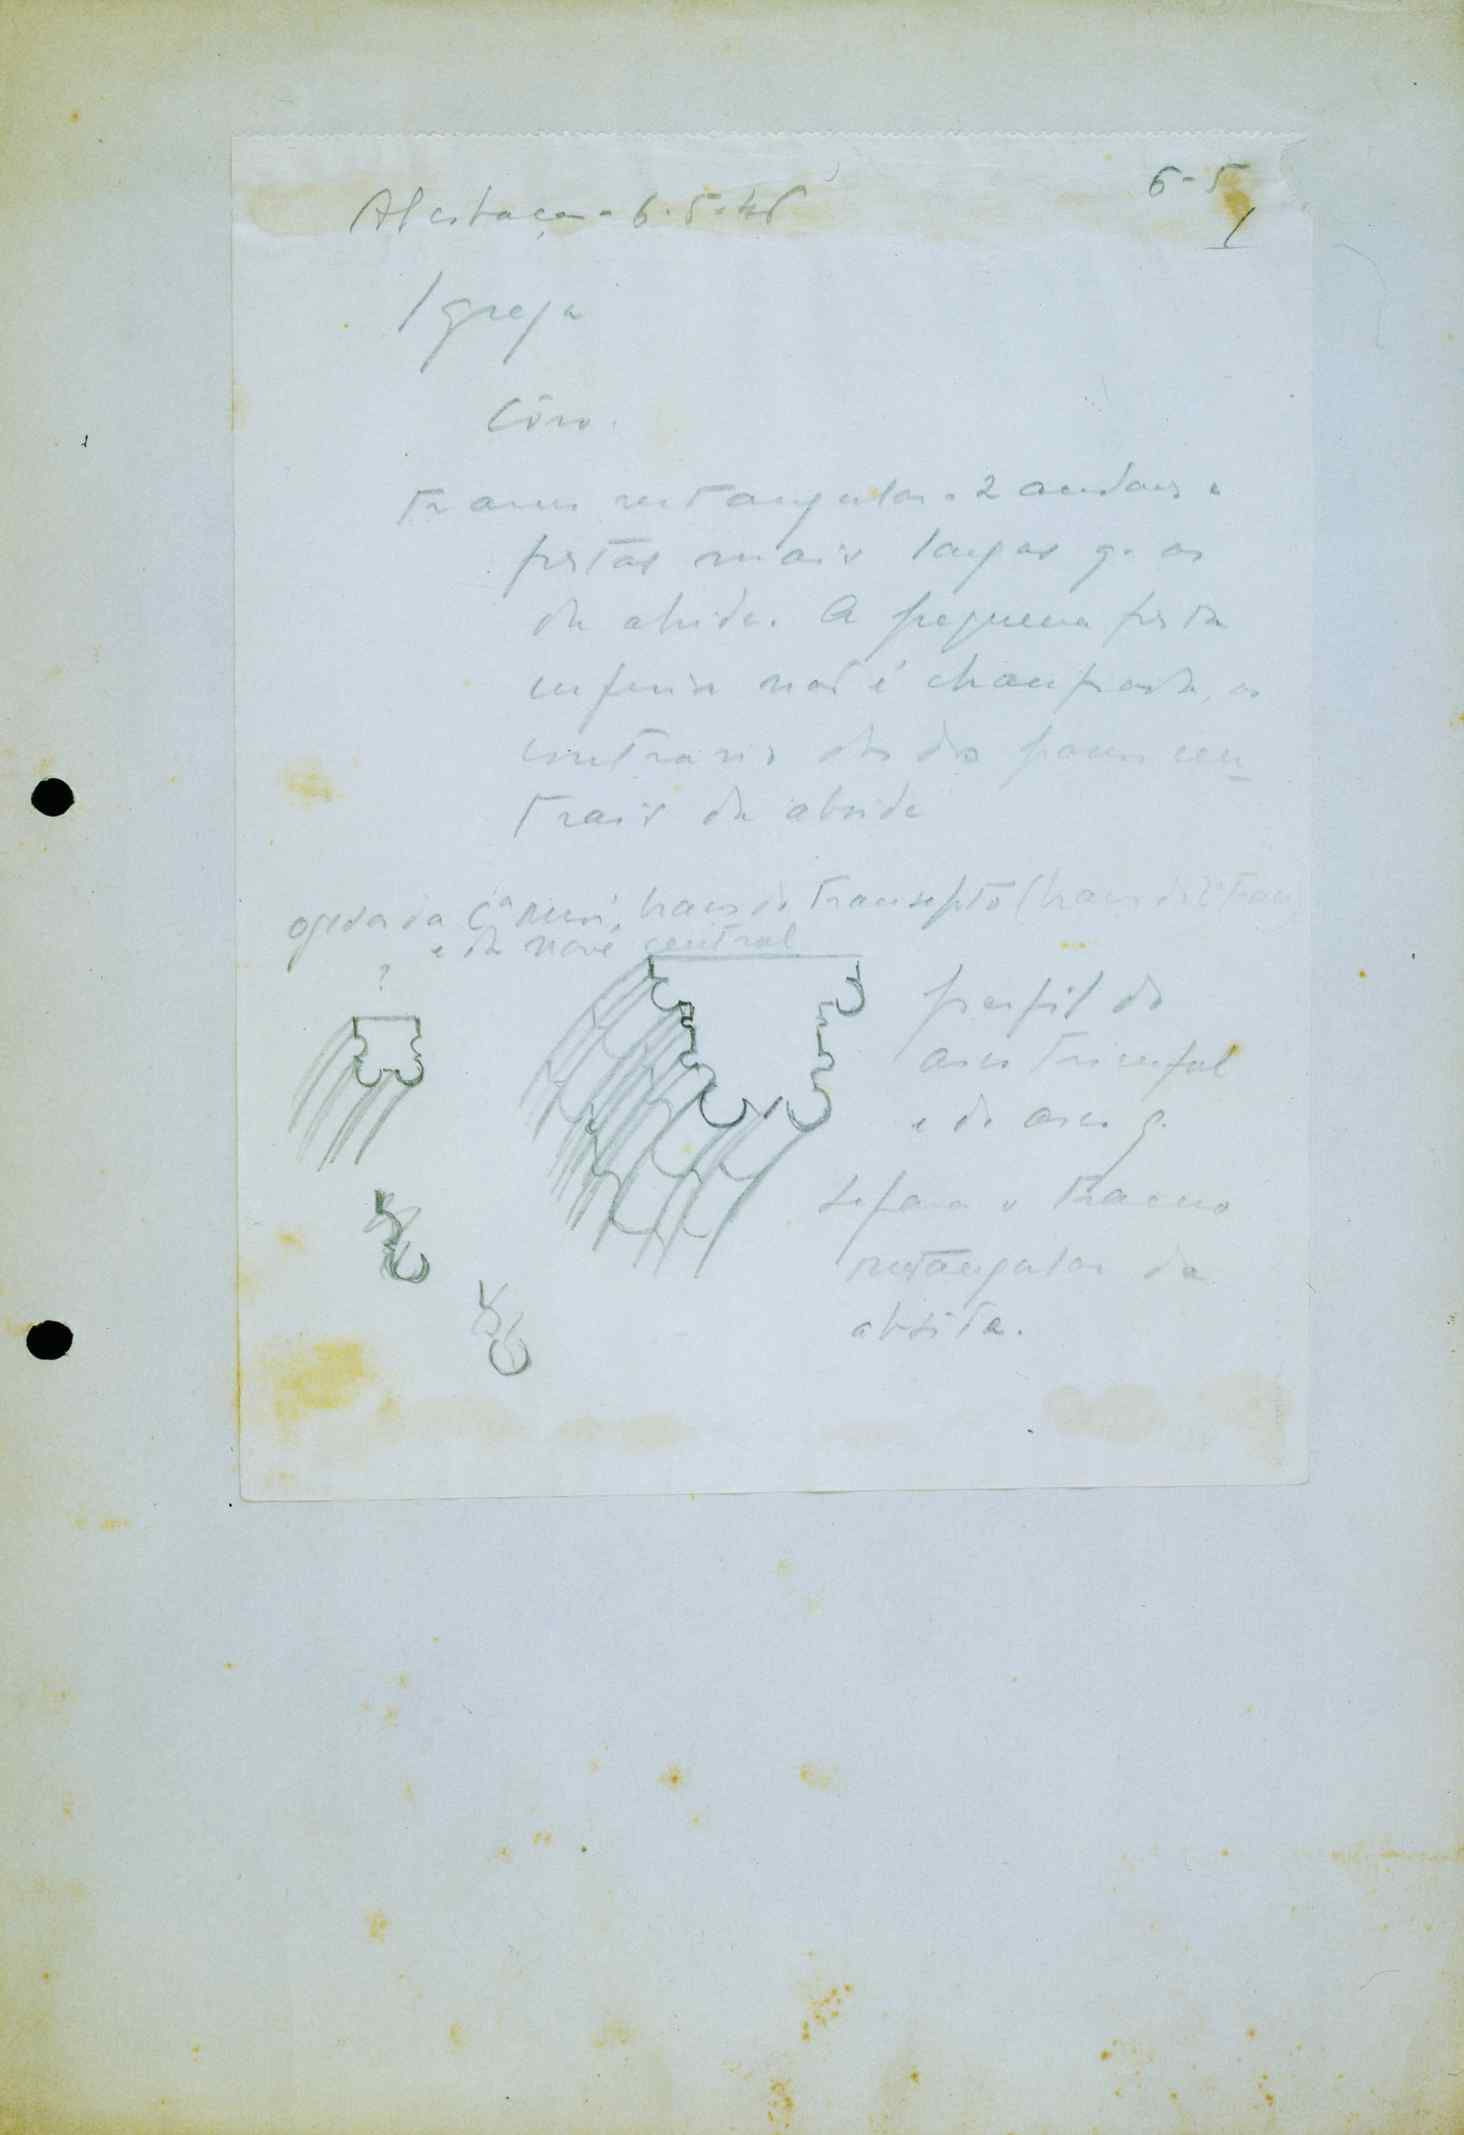 6-5
1
Alcobaça - 6-5-46
Igreja
Côro.
Tramo rectangular. 2 andares e
frestas mais largas q. as
da abside. A pequena fresta
inferior não é chanfrada, ao
contrario dos panos cen-
trais da abside
ogiva da C.a mór, braços do transepto (braços do
e da nave central
?
perfil do
arco triunfal
e do arco q.
separa o tramo
rectangular da
absite.